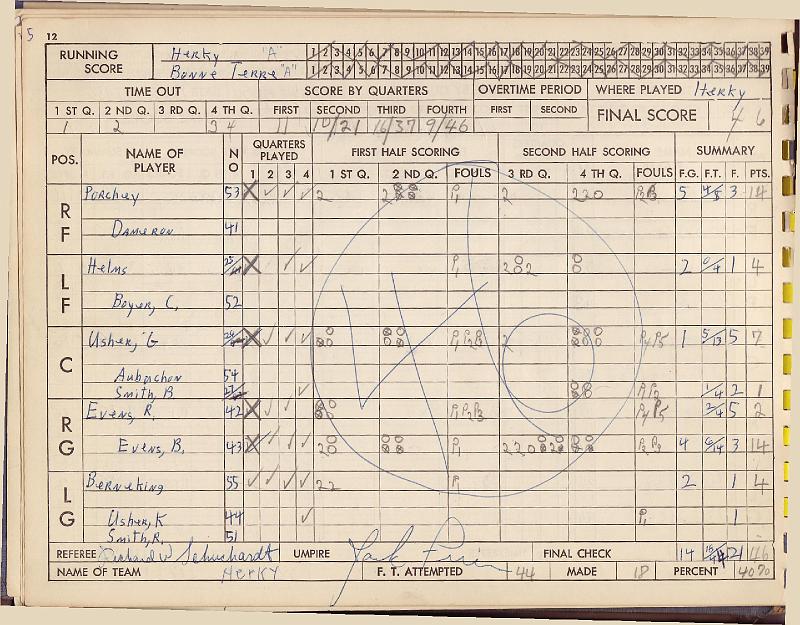 5
12
RUNNING SCORE
Herky "A" 1 2 3 4 5 6 7 8 9 10 11 12 13 14 15 16 17 18 19 20 21 22 23 24 25 26 27 28 29 30 31 32 33 34 35 36 37 38 39
Bonne Terre "A" 1 2 3 4 5 6 7 8 9 10 11 12 13 14 15 16 17 18 19 20 21 22 23 24 25 26 27 28 29 30 31 32 33 34 35 36 37 38 39
TIME OUT SCORE BY QUARTERS OVERTIME PERIOD WHERE PLAYED Herky
1 ST Q. 2 ND Q. 3 RD Q. 4 TH Q. FIRST SECOND THIRD FOURTH FIRST SECOND FINAL SCORE 46
1 2 3 4 11 10/21 16/37 9/46
POS. NAME OF PLAYER NO QUARTERS PLAYED FIRST HALF SCORING SECOND HALF SCORING SUMMARY
1 2 3 4 1 ST Q. 2 ND Q. FOULS 3 RD Q. 4 TH Q. FOULS F.G. F.T. F. PTS.
RF Porchey 53 2 2 P1 2 220 P2P3 5 4/5 3 14
Dameron 41
LF Helms P1 202 0 2 0/4 1 4
Boyer, C. 52
C Usher, G P1P2P3 2 P4P5 1 5/13 5 7
Aubuchon 54
Smith, B P1P2 1/4 2 1
RG Evens, R. 42 P1P2P3 P4P5 2/4 5 2
Evens, B. 43 P1 P2P3 4 6/14 3 14
LG Berneking 55 22 P1 2 1 4
Usher, K 44 P1 1
Smith, R. 51
REFEREE Richard W Schuchardt UMPIRE FINAL CHECK 14 21 46
NAME OF TEAM Herky F. T. ATTEMPTED 44 MADE 18 PERCENT 40%
46